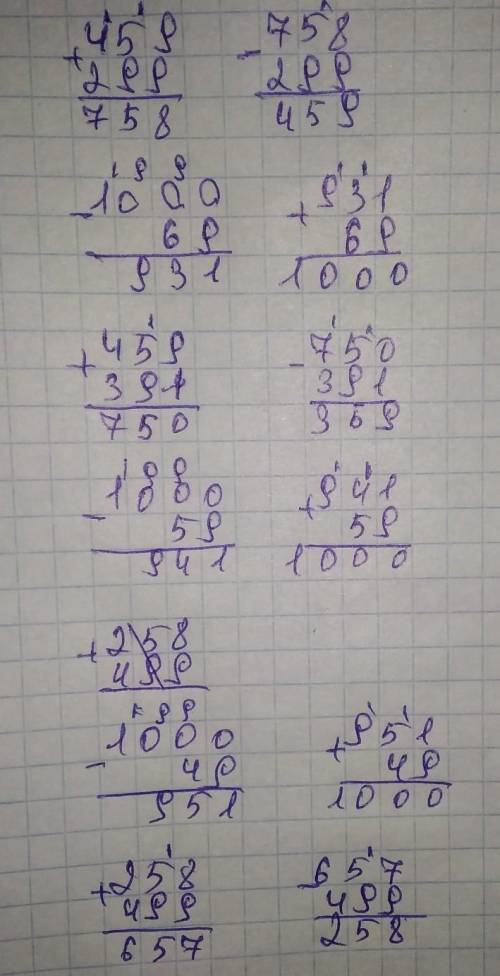 +459
299
758
-758
299
459
-1000
69
931
+931
69
1000
+459
391
750
-750
391
359
-1000
59
941
+941
59
1000
+258
499
-1000
49
951
+951
49
1000
+258
499
657
-657
499
258